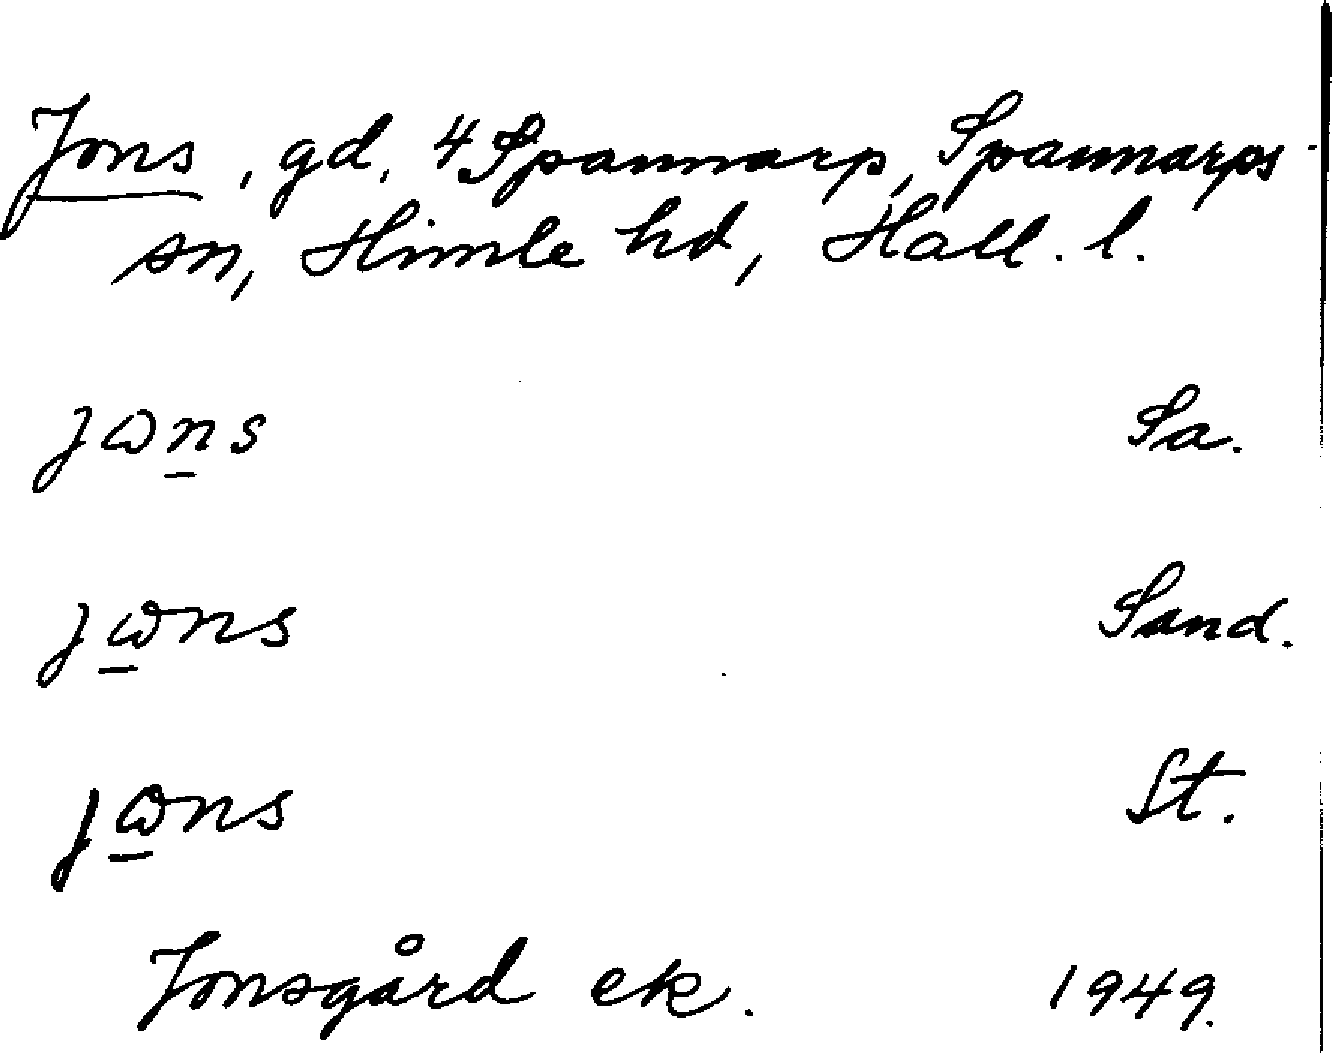 Jons, gd, 4 Spannarp, Spannarps
sn, Himle hd, Hall. l.
jɷn̲s Sa.
jɷ̲ns Sand.
jɷ̲ns St.
Jonsgård ek. 1949.